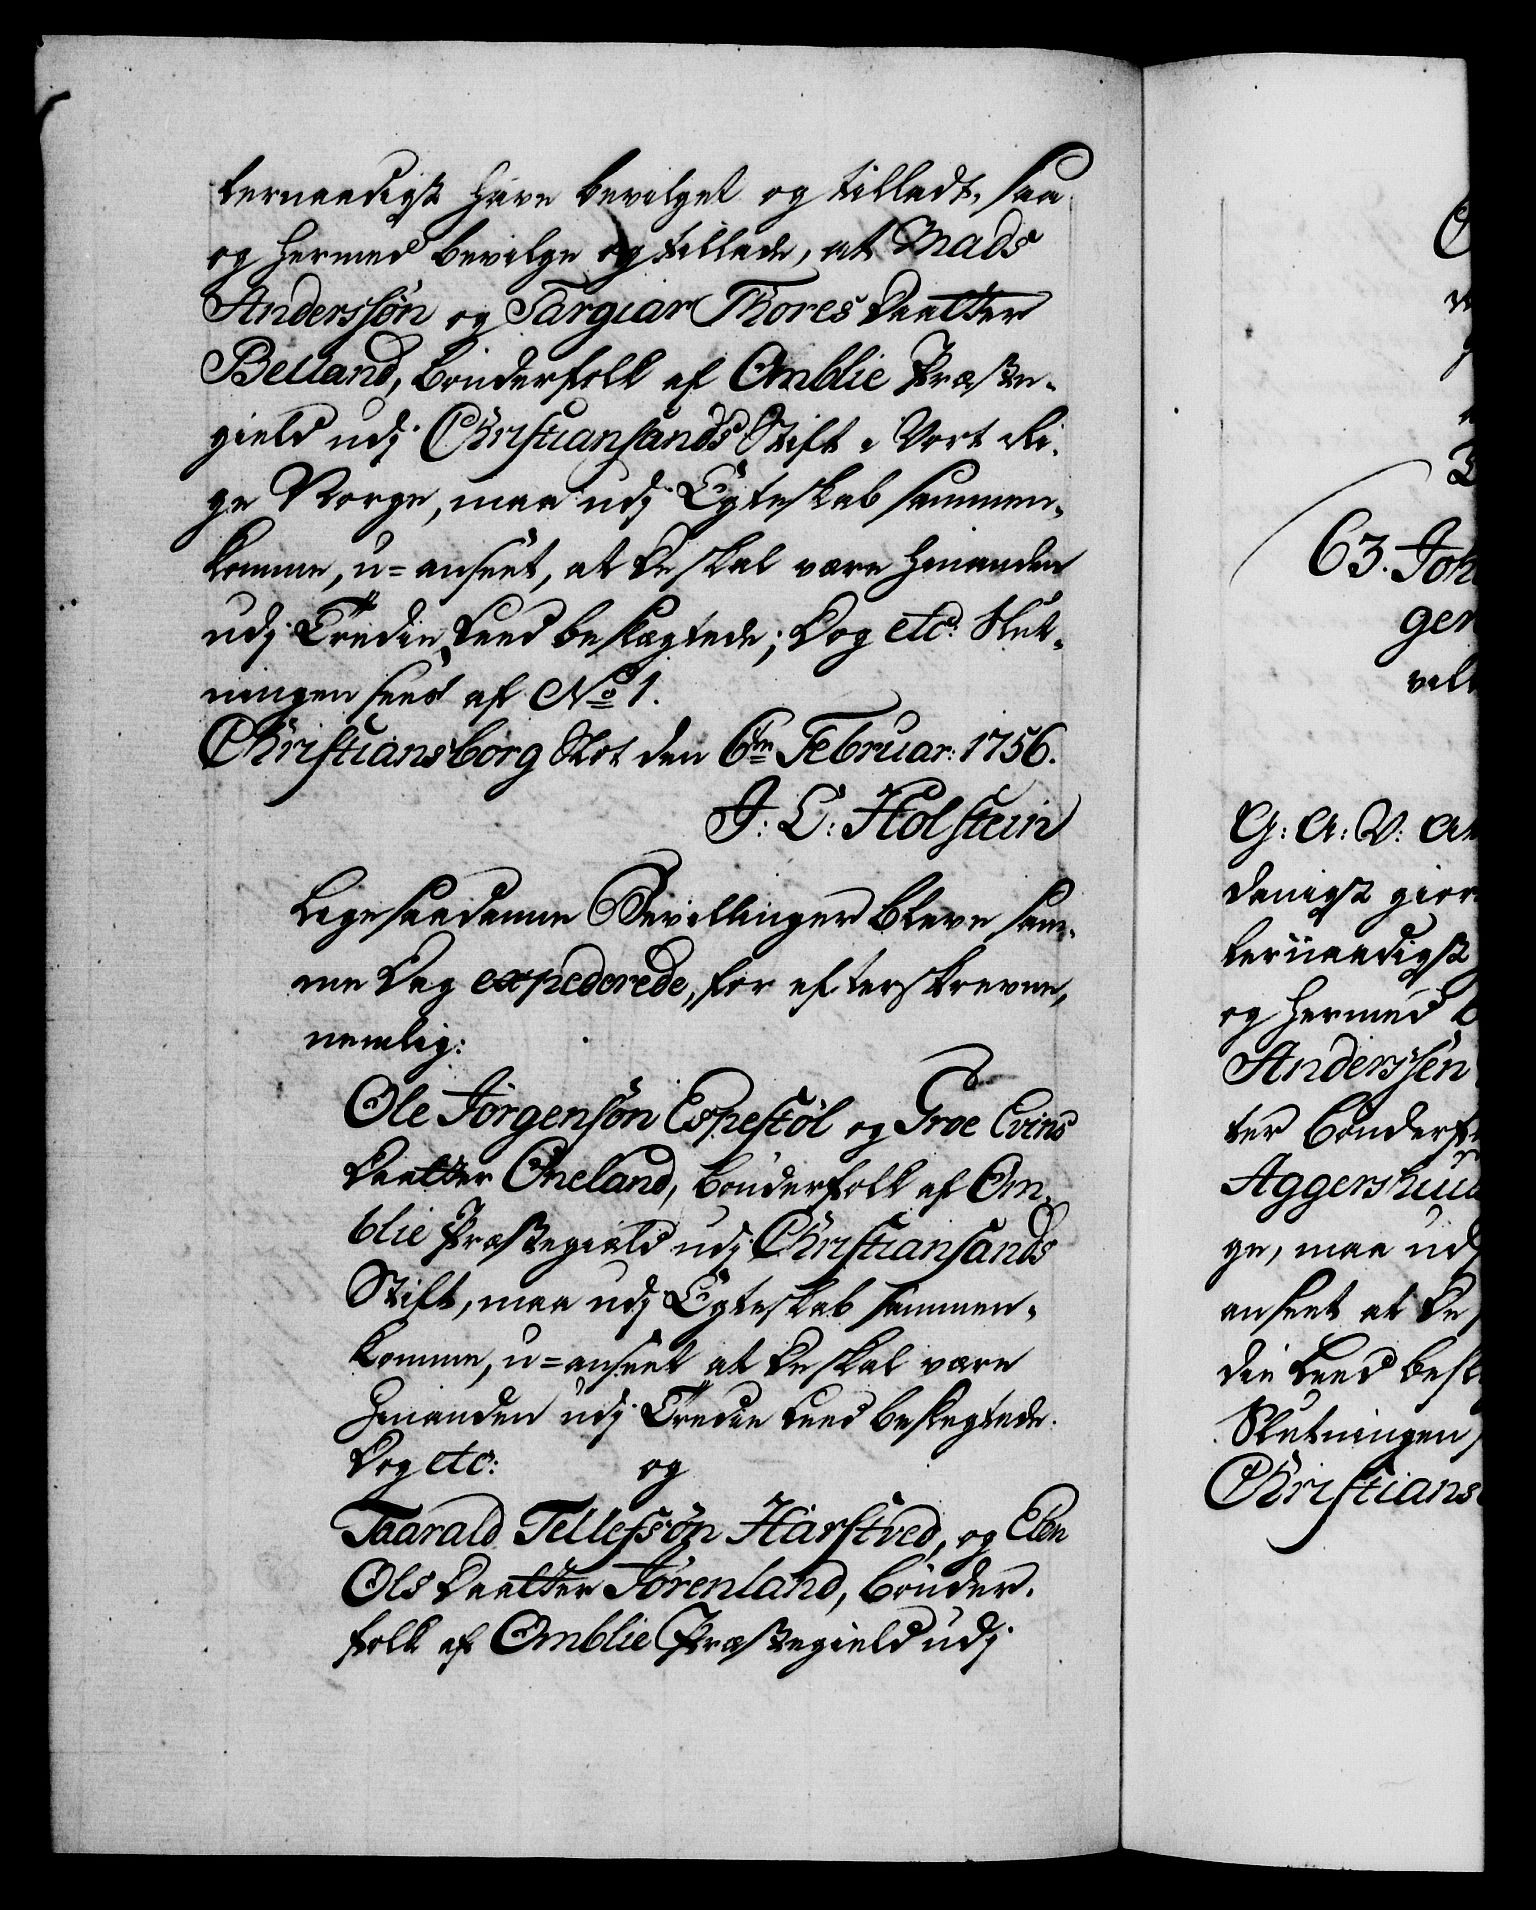 ternaadigst have bevilget og tilladt, saa
og hermed bevilge og tillade, at Mads
Anderssøn og Targiær Thores Daatter
Belland, Bønderfolk af Omblie Præste-
gield udj Christiansands Stift i Vort Ri-
ge Norge, maa udj Egteskab sammen-
komme, u=anseet, at de skal være hinanden
udj Tredie Leed beslægtede; Dog etc: Slut-
ningen sees af No 1.
Christiansborg Slot den 6te Februar: 1756.
J: L: Holstein
Ligesaadanne Bevillinger bleve sam-
me Dag expederede, for efterskrevne,
nemlig:
Ole Jørgensøn Espestøl og Groe Evens
Daatter Øneland, Bønderfolk af Om-
blie Præstegield udj Christiansands
Stift, maa udj Egteskab sammen-
komme, u=anseet at de skal være
hinanden udj Tredie Leed beslegtede.
Dog etc: og
Taarald Tellefssøn Harstved, og Elen
Ols Daatter Jørenland, Bønder-
folk af Omblie Præstegield udj
63. Joh
gen
G: A: V: At
danigst giort
ternaadigst
og hermed
Anderssøn
ter Bønderfo
Aggershuus
ge, maa udj
anseet at de
die Leed besl
Slutningen
Christians